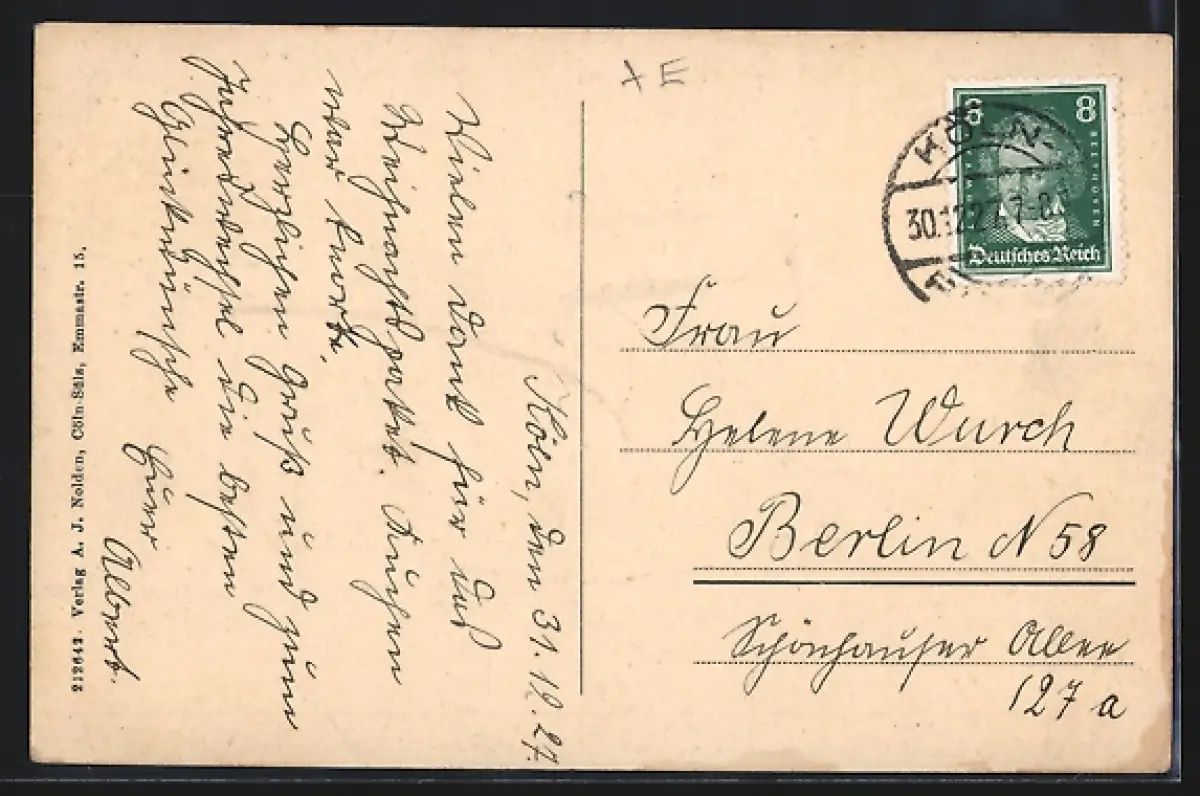 × E
8 8
BEETHOVEN
Deutsches Reich
KÖLN
30.12.27. 7-8
Köln, den 31.12.27.
Vielen Dank für das
Weihnachtspaket. Kuchen
war knorke.
Herzlichen Gruß und zum
Jahreswechsel die besten
Glückwünsche
Euer
Albert.
Frau
Helene Wurch
Berlin N 58
Schönhauser Allee
127 a
212642 Verlag A. J. Nolden, Cöln-Sülz, Emmastr. 15.